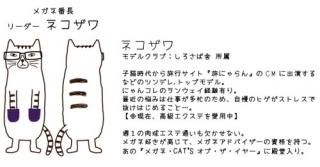 メガネ番長
リーダー ネコザワ
ネコザワ
モデルクラブ：しろさば舎 所属
子猫時代から旅行サイト『旅にゃらん』のCMに出演する
などのツンデレ、トップモデル。
にゃんコレのランウェイ経験有り。
最近の悩みは仕事が多忙のため、自慢のヒゲがストレスで
抜けはじめること…。
【※現在、高級エクステを愛用中】
週1の肉球エステ通いも欠かせない。
メガネ好きが高じて、メガネアドバイザーの資格を持つ。
あの『メガネ・CAT'S オブ・ザ・イヤー』に殿堂入り。